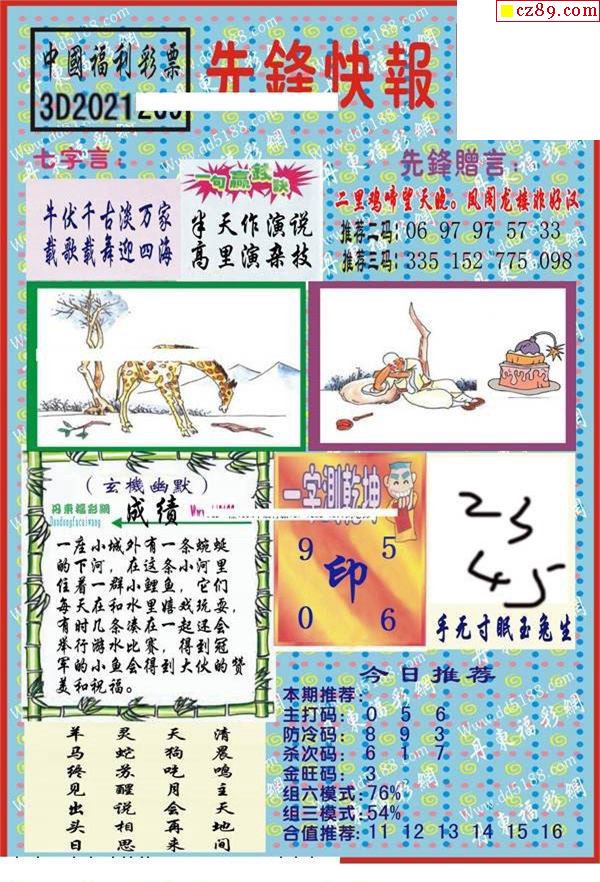 cz89.com
中國福利彩票
先鋒快報
3D2021
七字言：
一句赢
先鋒贈言：
牛伏千古淡万家
载歌载舞迎四海
半天作演说
高里演杂技
二里鸡啼望天晓。凤阁龙楼非好汉
推荐二码：06 97 97 57 33
推荐三码：335 152 775 098
（玄機幽默）
丹東福彩網
Dandongfucaiwang
成绩
一座小城外有一条蜿蜒
的下河，在这条小河里
住着一群小鲤鱼，它们
每天在和水里嬉戏玩耍，
有时几条凑在一起还会
举行游水比赛，得到冠
军的小鱼会得到大伙的赞
美和祝福。
一字測乾坤
9 5
印
0 6
23
45
手无寸眠玉兔生
今日推荐
本期推荐：
主打码：0 5 6
防冷码：8 9 3
杀次码：6 1 7
金旺码：3
组六模式：76%
组三模式：54%
合值推荐：11 12 13 14 15 16
清晨鸣主天地间
天狗吃月会再来
灵蛇苏醒说相思
羊马终见出头日
www.dd5188.com
丹東福彩網